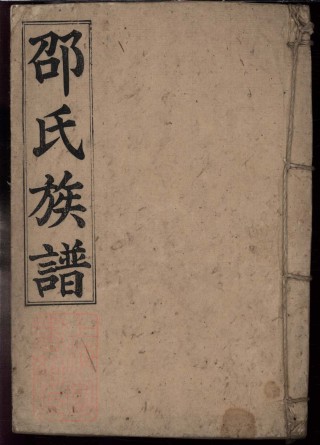 邵氏族譜